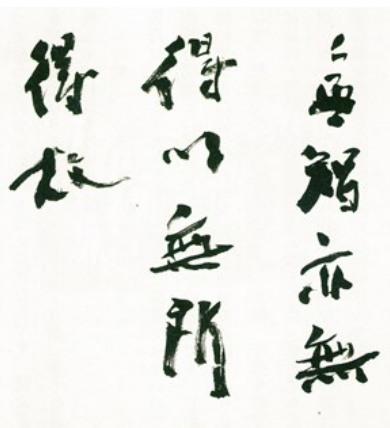 無智亦無
得以無所
得故